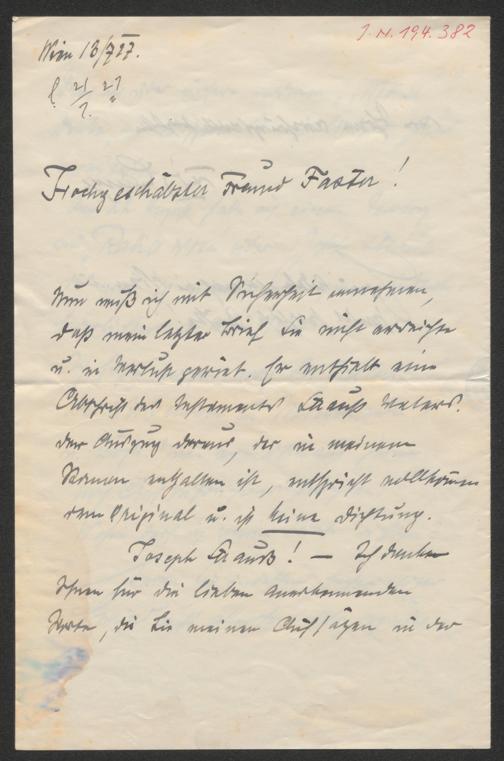 J. N. 194.382
Wien 13/7 27.
Hochgeschätzter Freund Faster!
Nun muß ich mit Sicherheit annehmen,
daß mein letzter Brief Sie nicht erreichte
u. in Verlust geriet. Er enthielt eine
Abschrift des Testaments Strauß Vaters.
Der Auszug daraus, der in meinem
Roman enthalten ist, entspricht vollkommen
dem Original u. ist keine Dichtung.
Joseph Strauß! — Ich danke
Ihnen für die lieben anerkennenden
Worte, die Sie meinen Aufsätzen in der